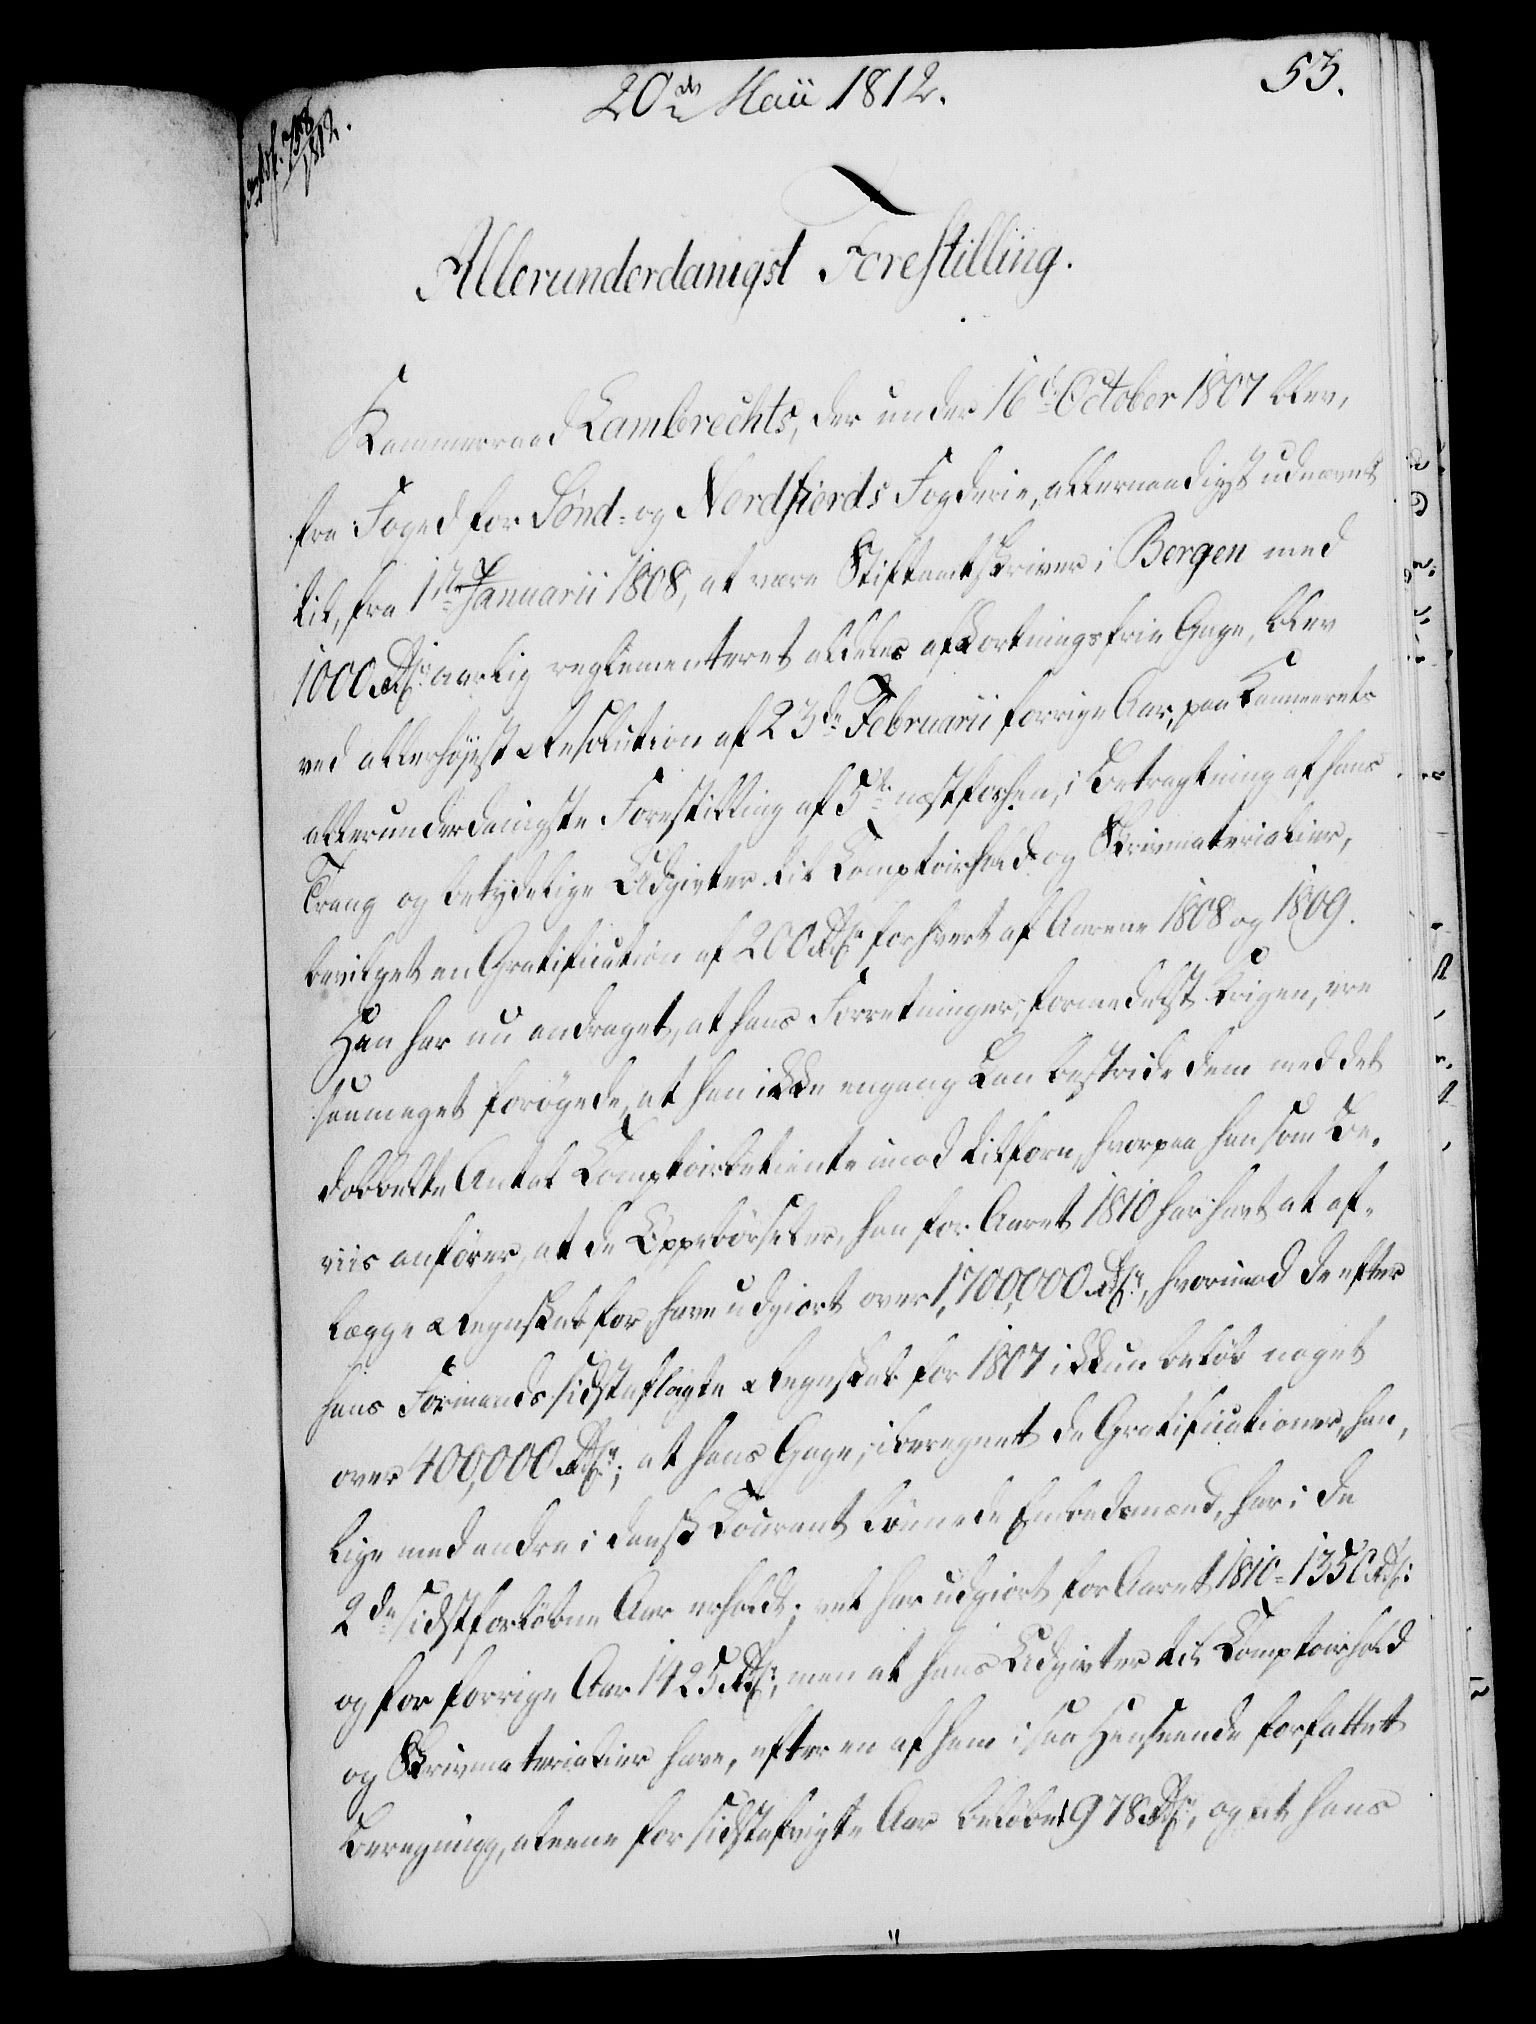 20de Maii 1812.
53.
758
1812.
Allerunderdanigst Forestilling.
Kammerraad Lambrechts, der under 16de October 1807 blev,
fra Foged for Sönd- og Nordfiords Fogderie, allernaadigst udnævnt
til, fra 1ste Januarii 1808, at være Stiftamtskriver i Bergen med
1000 Rdr. aarlig reglementeret aldeles afkortningsfrie Gage, blev
ved allerhöjest Resolution af 23de Februarii forrige Aar, paa Kammerets
allerunderdanigste Forestilling af 5te næstforhen, i Betragtning af hans
Trang og betydelige Udgivter til Comptoirhold og Skrivmaterialier,
bevilget en Gratification af 200 Rdr. for hvert af Aarene 1808 og 1809.
Han har nu andraget, at hans Forretninger, formedelst Krigen, ere
saameget forögede, at han ikke engang kan bestride dem med det
dobbelte Antal Comptoirbetiente imod tilforn, hvorpaa han som Be-
viis anförer, at de Oppebörseler, han for Aaret 1810 har havt at af-
lægge Regnskab for, have udgiort over 1,700,000 Rdr., hvorimod de efter
hans Formands sidstaflagte Regnskab for 1807 ikkun belöb noget
over 400,000 Rdr.; at hans Gage, iberegnet de Gratificationer, han,
lige med andre i dansk Courant lönnede Embedsmænd, har i de
2de sidstforlöbne Aar erholdt, vel har udgiort for Aaret 1810 - 1350 Rdr.
og for forrige Aar 1425 Rdr., men at hans Udgivter til Comptoirhold
og Skrivmaterialier have, efter en af ham i saa Henseende forfattet
Beregning, alene for sidstafvigte Aar belöbet 978 Rdr., og at hans